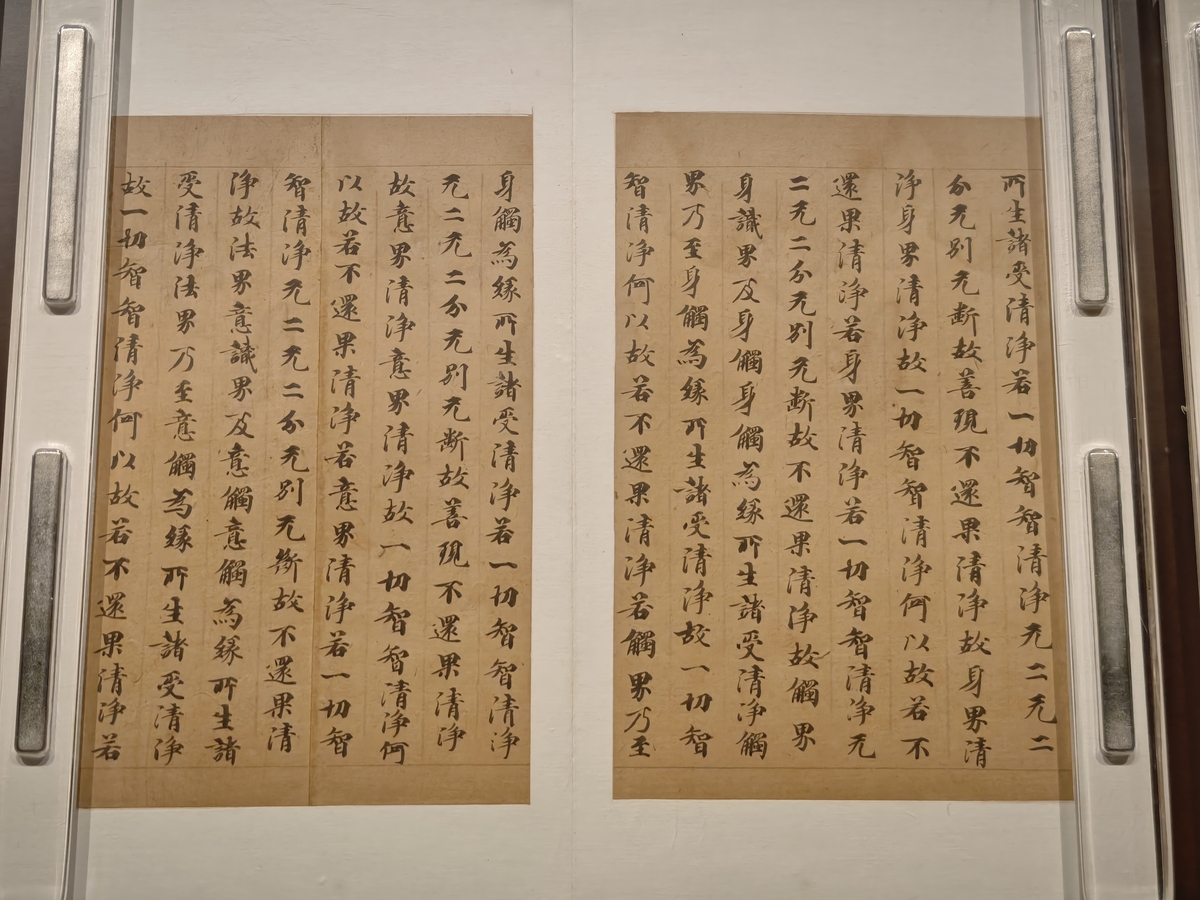 所生諸受清淨若一切智智清淨无二无二
分无別无断故善現不還果清淨故身界清
淨身界清淨故一切智智清淨何以故若不
還果清淨若身界清淨若一切智智清淨无
二无二分无別无断故不還果清淨故觸界
身識界及身觸身觸為緣所生諸受清淨觸
界乃至身觸為緣所生諸受清淨故一切智
智清淨何以故若不還果清淨若觸界乃至
身觸為緣所生諸受清淨若一切智智清淨
无二无二分无別无断故善現不還果清淨
故意界清淨意界清淨故一切智智清淨何
以故若不還果清淨若意界清淨若一切智
智清淨无二无二分无別无断故不還果清
淨故法界意識界及意觸意觸為緣所生諸
受清淨法界乃至意觸為緣所生諸受清淨
故一切智智清淨何以故若不還果清淨若